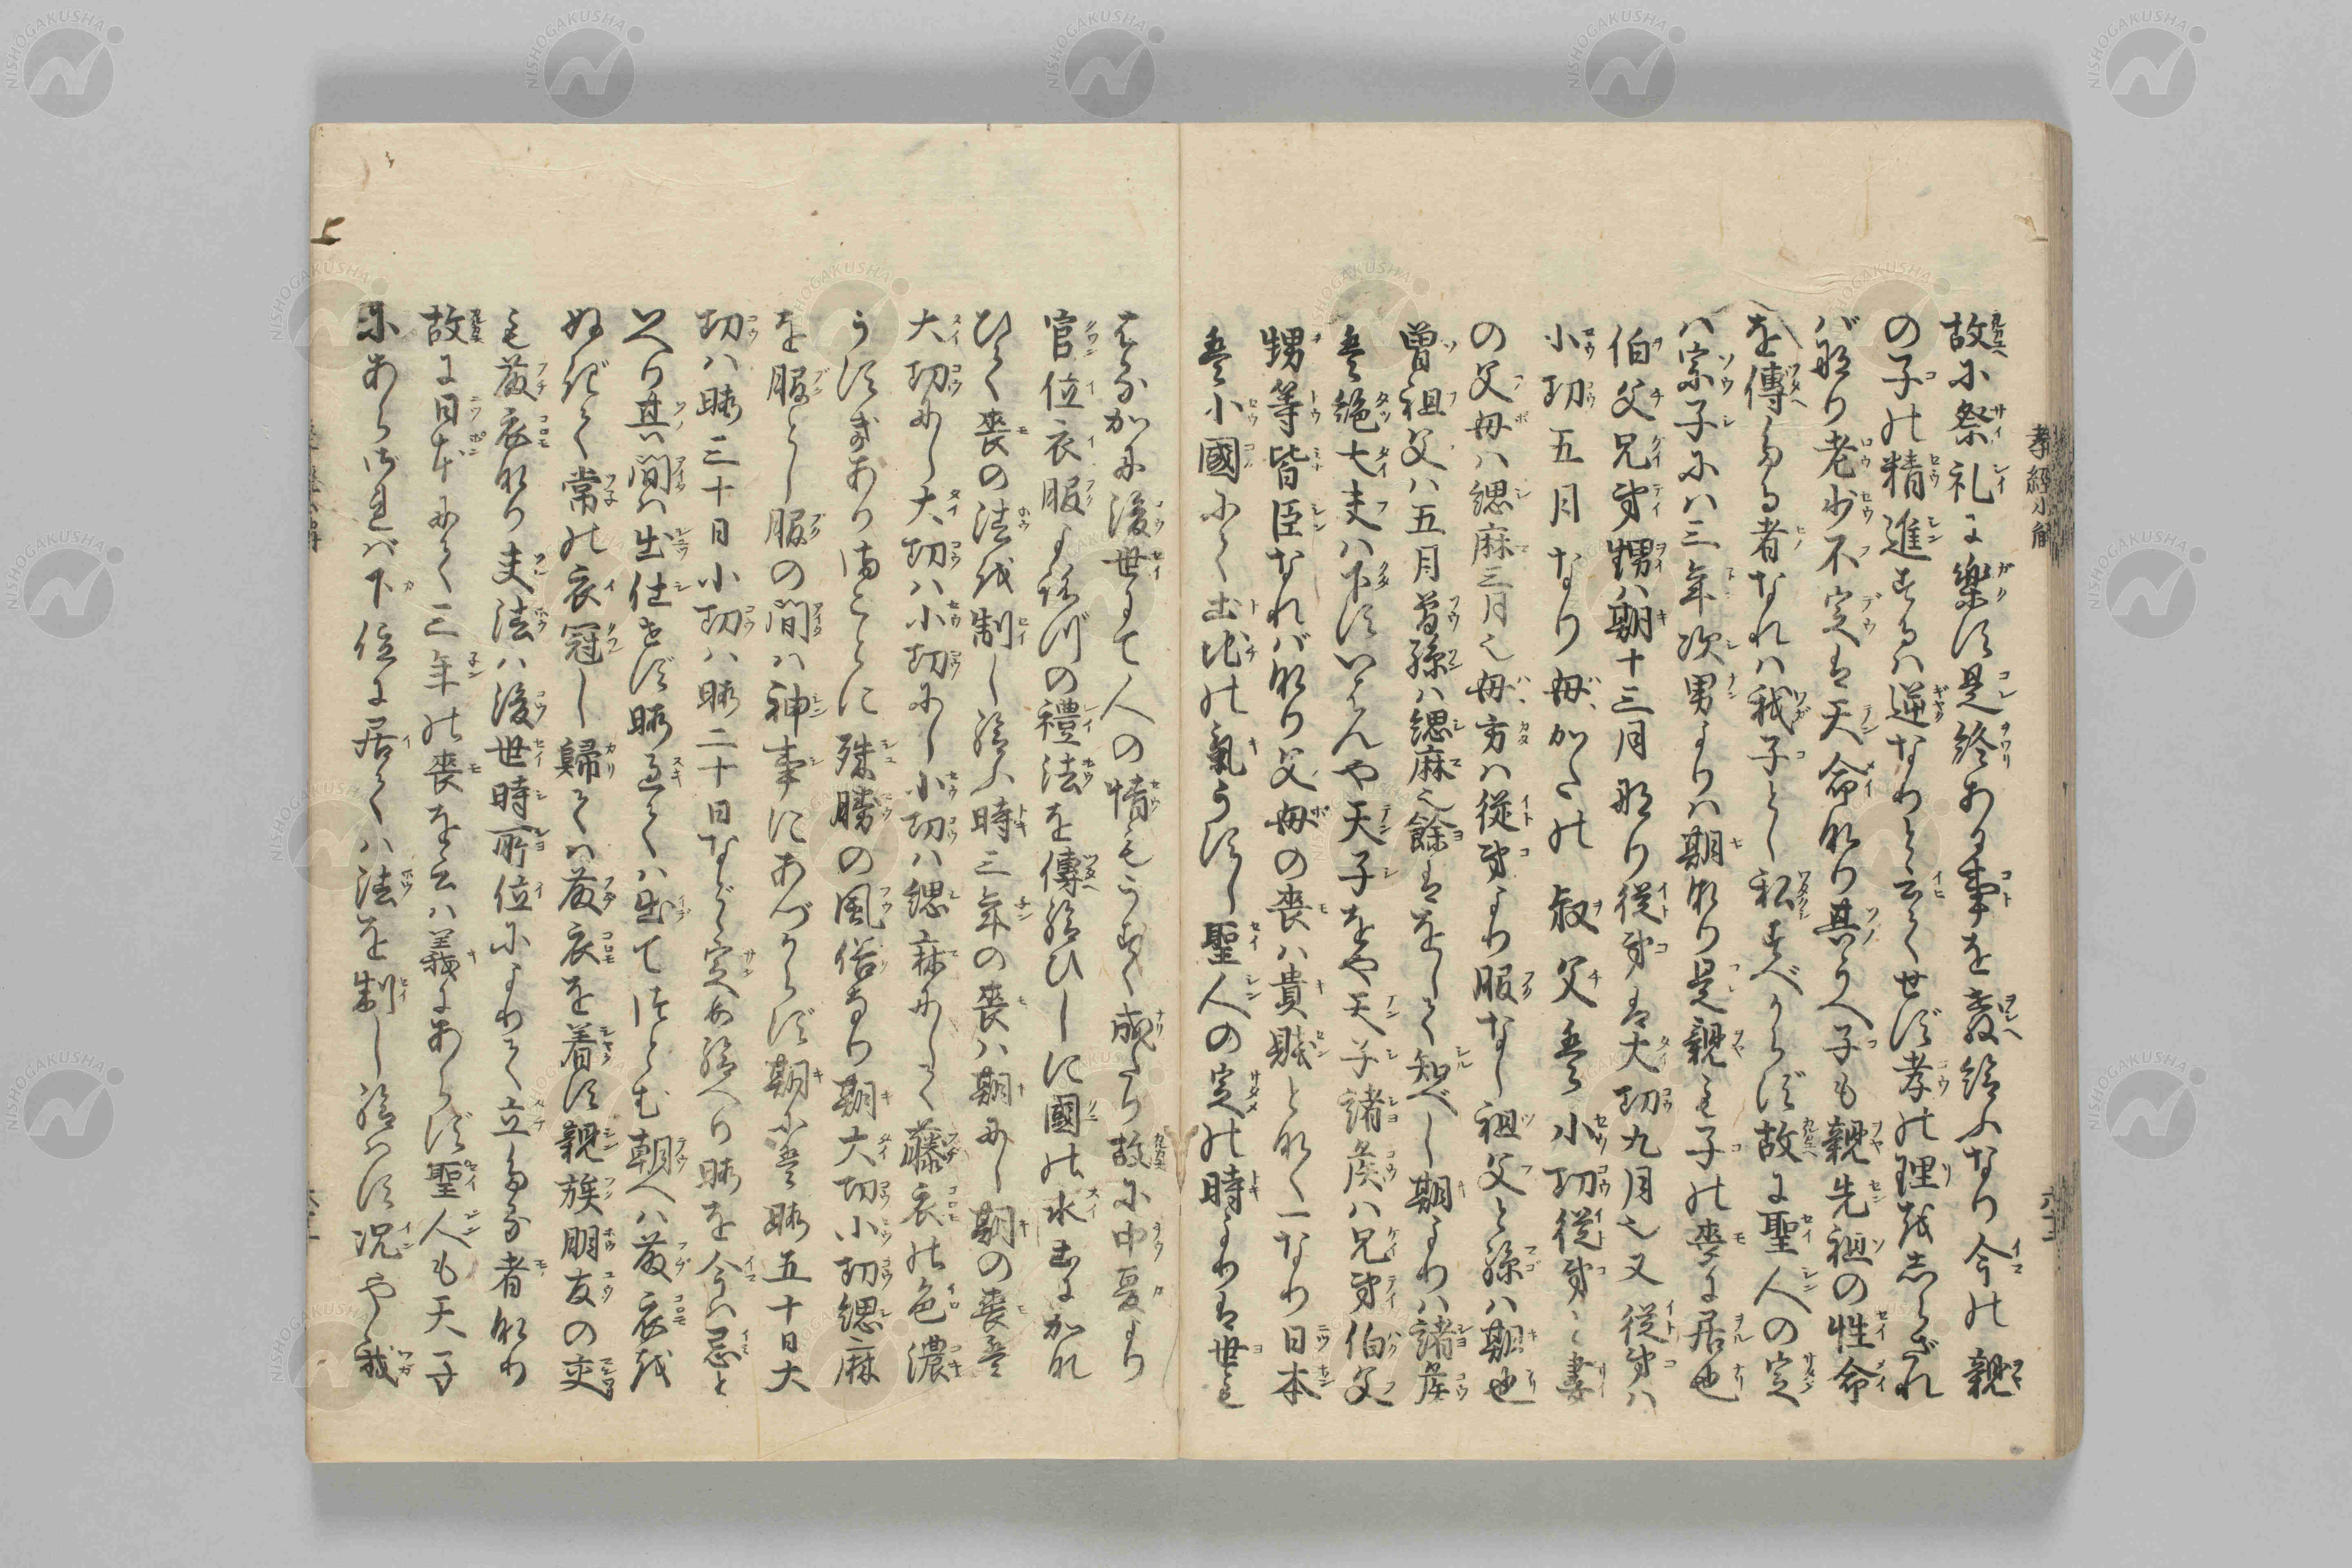 孝經小解
故に祭礼に樂せす是終ある事を教給ふなり今の親
の子の精進するは逆なりと云て世に孝の理をしらざれ
ばなり老少不定は天命なり其うへ子も親先祖の性命
を傳たる者なれは我子とし私すべからず故に聖人の定
は宗子には三年次男よりは期なり是親も子の喪に居也
伯父兄弟甥は期十三月なり従弟は大功九月也又従弟は
小功五月なり母かたの叔父是小功従弟は妻
の父母は緦麻三月也母方は従弟より服なし祖父と孫は期也
曽祖父は五月曽孫は緦麻也餘はをして知べし期よりは諸矦
是絶大夫は下すいはんや天子をや天子諸矦は兄弟伯父
甥等皆臣なればなり父母の喪は貴賤となく一なり日本
是小國にて土地の氣うすし聖人の定の時よりは世も
はるかに後世にて人の情もうすく成たり故に中夏より
官位衣服よろづの禮法を傳給ひしに國の水土にかなへ
ひて喪の法を制し給ふ時三年の喪は期にし期の喪是
大功にし大功は小功にし小功は緦麻にして藤衣の色濃
うすきありまことに殊勝の風俗なり期大功小功緦麻
を服とし服の間は神事にあづからず期に是暇五十日大
功は暇三十日小功は暇二十日など定め給へり暇を今は忌と
いへり其間は出仕せず暇過ては出てつとむ朝へは藤衣を
ぬぎて常の衣冠し歸ては藤衣を着す親族朋友の交
も藤衣なり夫法は後世時所位によりて立たる者なり
故に日本にて三年の喪を云は義にあらず聖人も天子
にあらざれば下位に居ては法を制し給はず况や我